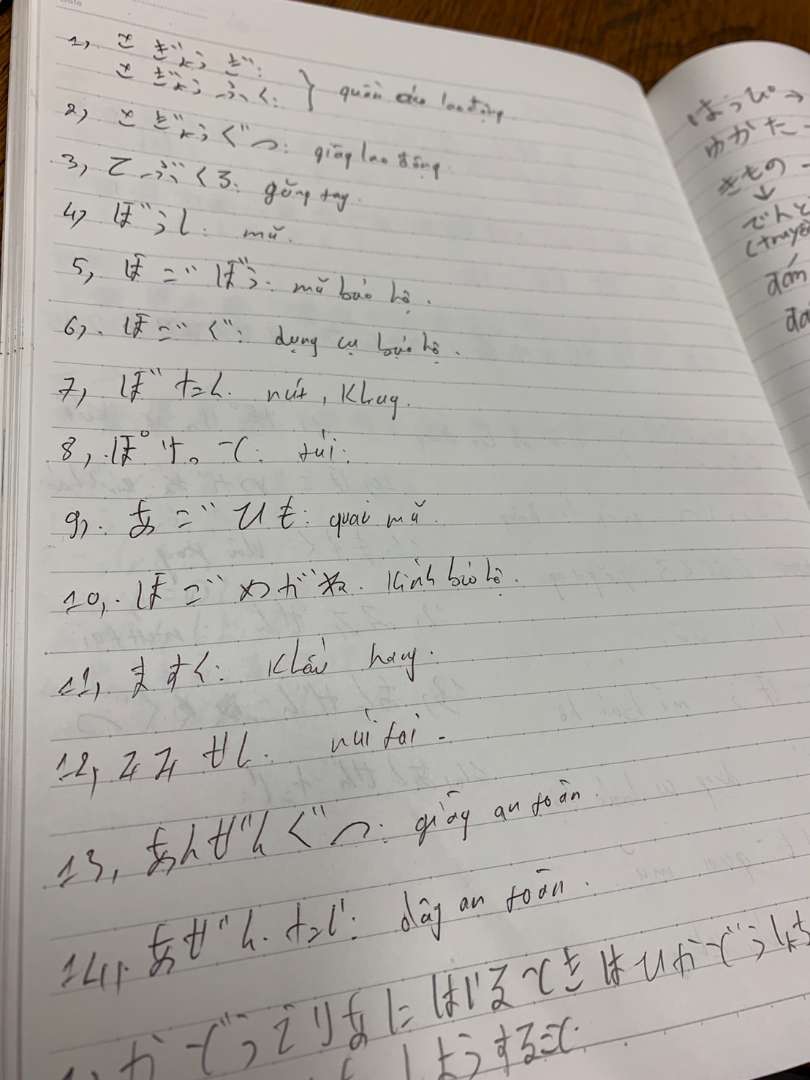 1, さぎょうぎ:
さぎょうふく: } quần áo lao động
2, さぎょうぐつ: giày lao động
3, てぶくろ: găng tay
4, ぼうし: mũ.
5, ほごぼう: mũ bảo hộ.
6, ほごぐ: dụng cụ bảo hộ.
7, ぼたん. nút, khuy.
8, ぽけって: túi:
9, あごひも: quai mũ.
10, ほごめがね. kính bảo hộ.
11, ますく: khẩu hang.
12, みみせん. nút tai -
13, あんぜんぐつ: giầy an toàn.
14, あぜんたい: dây an toàn.
はっぴ→
ゆかた-
きもの-
↓
でんと
(truyề